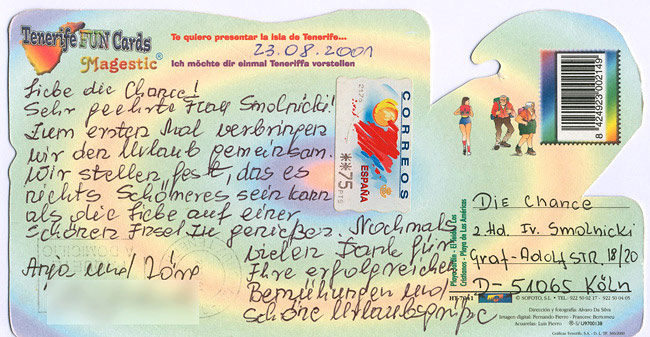 Tenerife FUN Cards
Magestic®
Te quiero presentar la isla de Tenerife...
23.08.2001
Ich möchte dir einmal Teneriffa vorstellen
Liebe die Chance!
Sehr geehrte Frau Smolnicki!
Zum ersten Mal verbringen
wir den Urlaub gemeinsam.
Wir stellen fest, das es
nichts Schöneres sein kann
als die Liebe auf einer
schönen Insel zu genießen. Nochmals
vielen Dank für
Ihre erfolgreichen
Bemühungen und
schöne Urlaubsgrüße
Anja und Jörg
CORREOS
ESPAÑA
**75 PTS
8 424923 002149
Die Chance
z Hd. Iv. Smolnicki
Graf-Adolfstr. 18/20
D-51065 Köln
Cristianos - Playa de Las Américas
© SOFOTO, S.L. - TEL. 922 50 02 17 - 922 50 04 05
Dirección y fotografía: Alvaro Da Silva
Imagen digital: Fernando Fierro - Francesc Bertomeu
Acuarelas: Luis Fierro